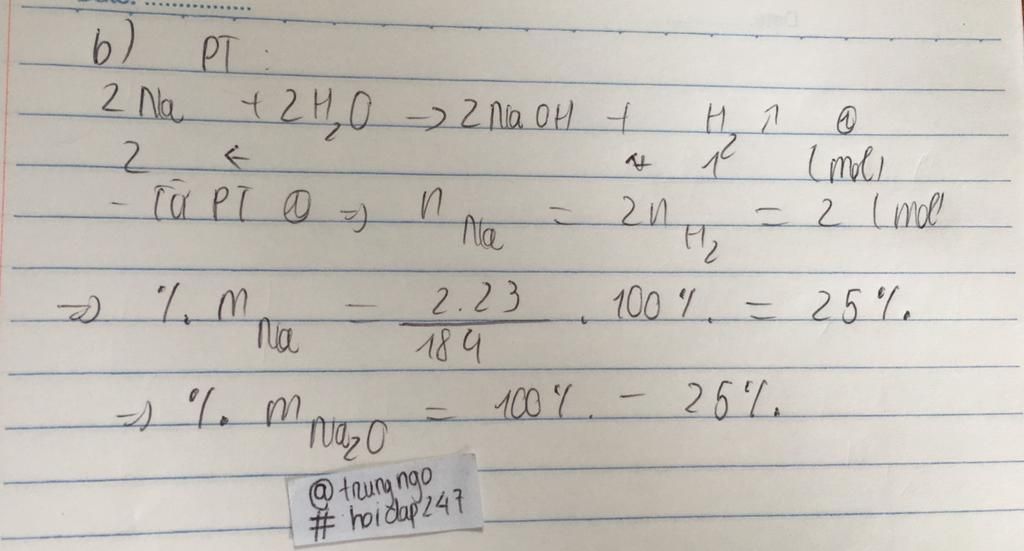 b) PT :
2Na + 2H₂O → 2NaOH + H₂ ↑ ①
2 ← 1 (mol)
- Từ PT ① ⇒ n Na = 2n H₂ = 2 (mol
⇒ %. m Na = 2.23/184 . 100%. = 25%.
⇒ %. m Na₂O = 100%. - 25%.
@trungngo
# hoidap247